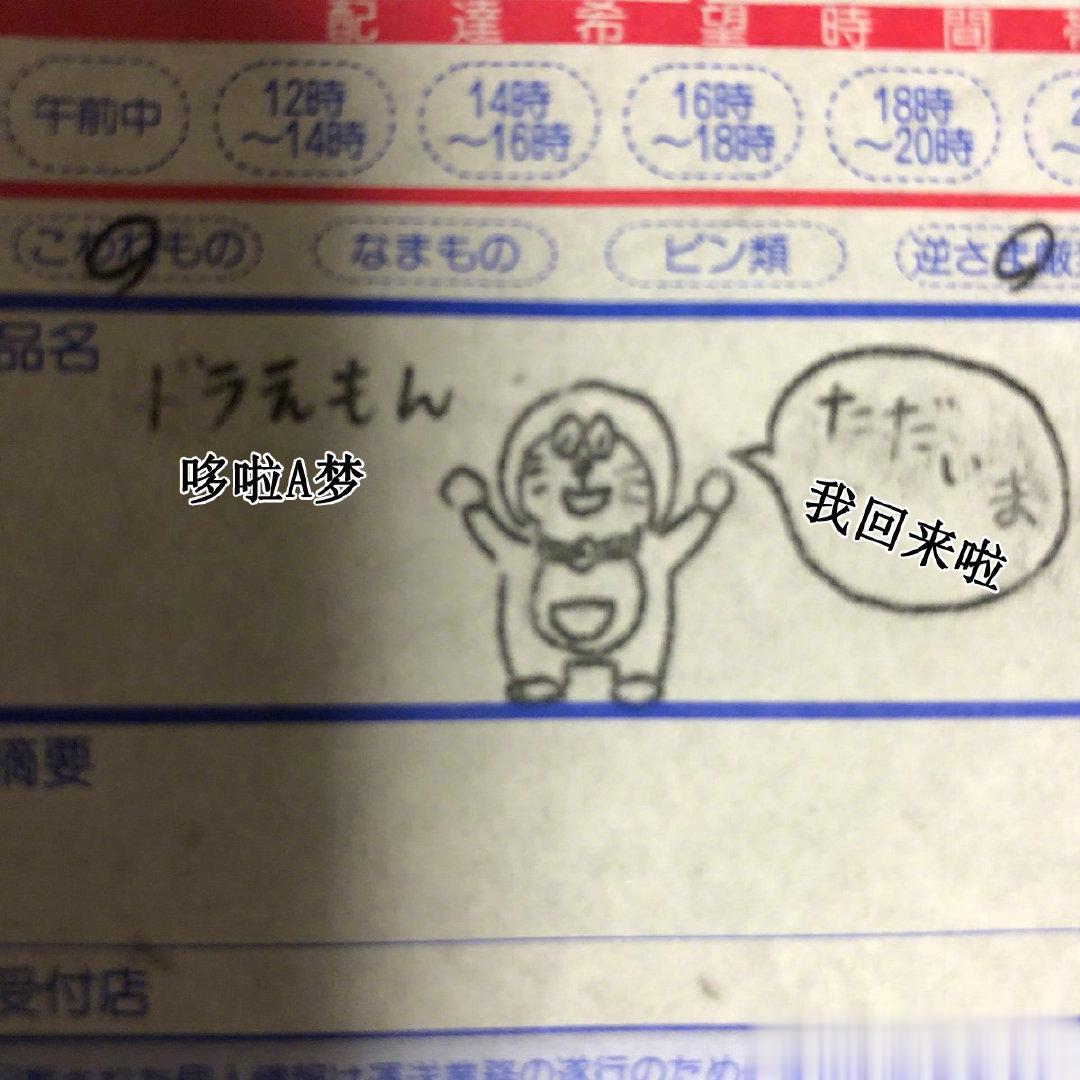 配達希望時間
午前中
12時
～14時
14時
～16時
16時
～18時
18時
～20時
こわれもの
なまもの
ビン類
逆さま厳
品名
ドラえもん
哆啦A梦
ただいま
我回来啦
摘要
受付店
は運送業務の遂行のため